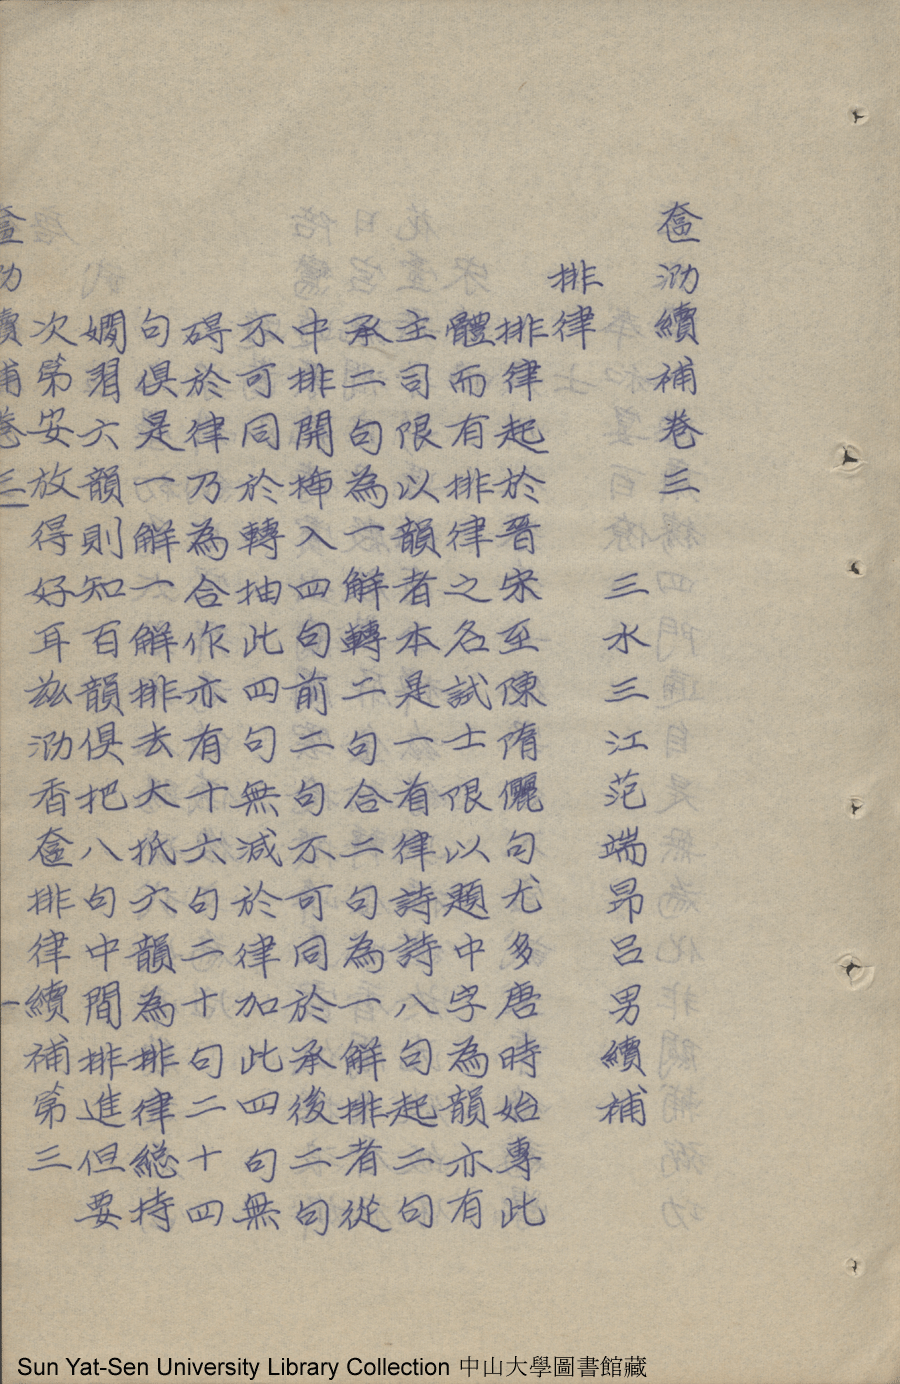 奩泐續補卷三
三水三江范端昂呂男續補
排律
排律起於晉宋至陳隋儷句尤多唐時始專此
體而有排律之名試士限以題中字為韻亦有
主司限以韻者本是一首律詩詩八句起二句
承二句為一解轉二句合二句為一解排者從
中排開揷入四句前二句不可同於承後二句
不可同於轉抽此四句無減於律加此四句無
碍於律乃為合作亦有十六句二十句二十四
句俱是一解一解排去大扺六韻為排律緫持
嫺習六韻則知百韻俱把八句中間排進但要
次第安放得好耳茲泐香奩排律續補第三
奩泐續補卷三 一
Sun Yat-Sen University Library Collection 中山大學圖書館藏